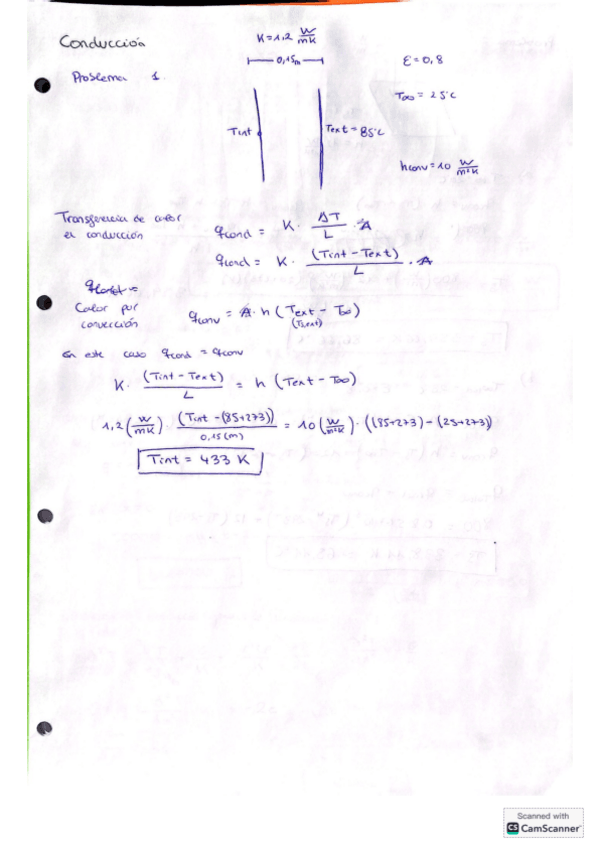 Conducción
K=1,2 W/mK
0,15m
ε=0,8
Problema 1.
T∞ = 25°C
Tint
Text = 85°C
hconv=10 W/m²K
Transferencia de calor
en conducción
qcond = K · ΔT/L · A
qcond = K · (Tint - Text)/L · A
qcond =
Calor por
convección
qconv = A · h (Text - T∞)
(Ts,ext)
En este caso qcond = qconv
K · (Tint - Text)/L = h (Text - T∞)
1,2 (W/mK) · (Tint - (85+273))/0,15(m) = 10 (W/m²K) · ((85+273) - (25+273))
Tint = 433 K
Scanned with
CS CamScanner